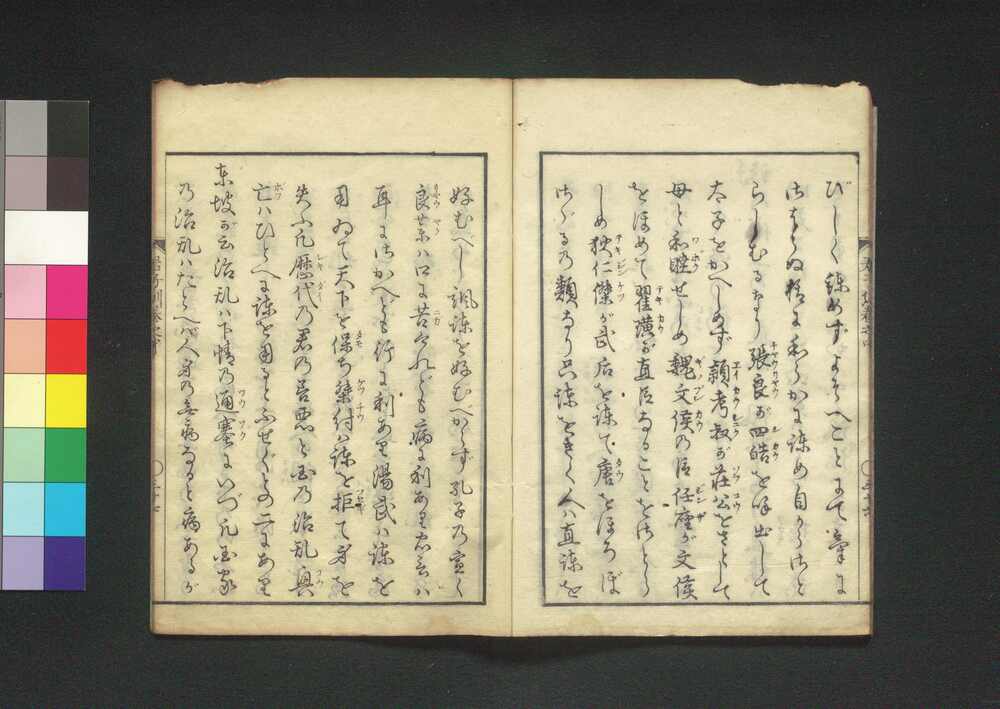 びしく諫めずよそへごとにて豪に
らしむるなり張良が四皓を呼出して
太子をかへしめず頴考叔が荘公をさとして
母と和睦せしめ魏文侯の臣任座が文侯
をほめて翟璜が直臣なることをさとら
しめ狄仁傑が武后を諫て唐をほろぼ
さゞるの類なり只諫をきく人は直諫を
好むべし諷諫を好むべからず孔子の宣く
良薬は口に苦けれども病に利あり忠言は
耳にさかへども行に利あり湯武は諫を
用ゐて天下を保ち桀紂は諫を拒て身を
失ふ凡歴代の君の善悪と国の治乱興
亡はひとへに諫を用るとふせぐとの二にあり
東坡が云治乱は下情の通塞にいづ凡国家
の治乱はたとへば人身の無病なると病あるが